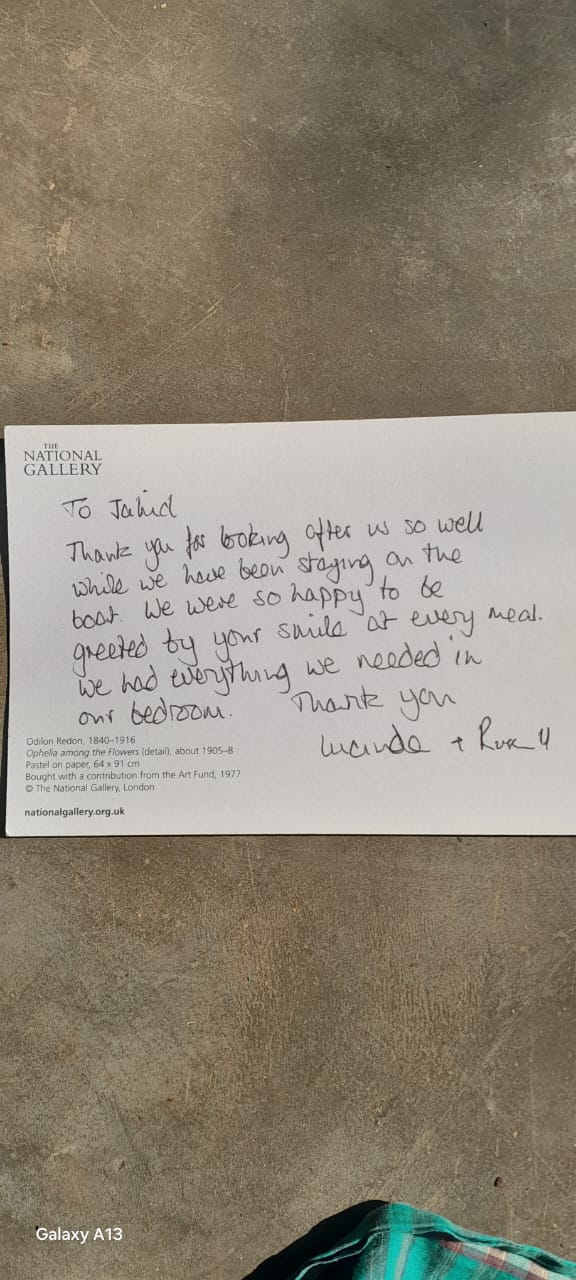 THE
NATIONAL
GALLERY
To Jahid
Thank you for looking after us so well
while we have been staying on the
boat. We were so happy to be
greeted by your smile at every meal.
We had everything we needed in
our bedroom. Thank you
Lucinda +
Odilon Redon, 1840–1916
Ophelia among the Flowers (detail), about 1905–8
Pastel on paper, 64 x 91 cm
Bought with a contribution from the Art Fund, 1977
© The National Gallery, London
nationalgallery.org.uk
Galaxy A13